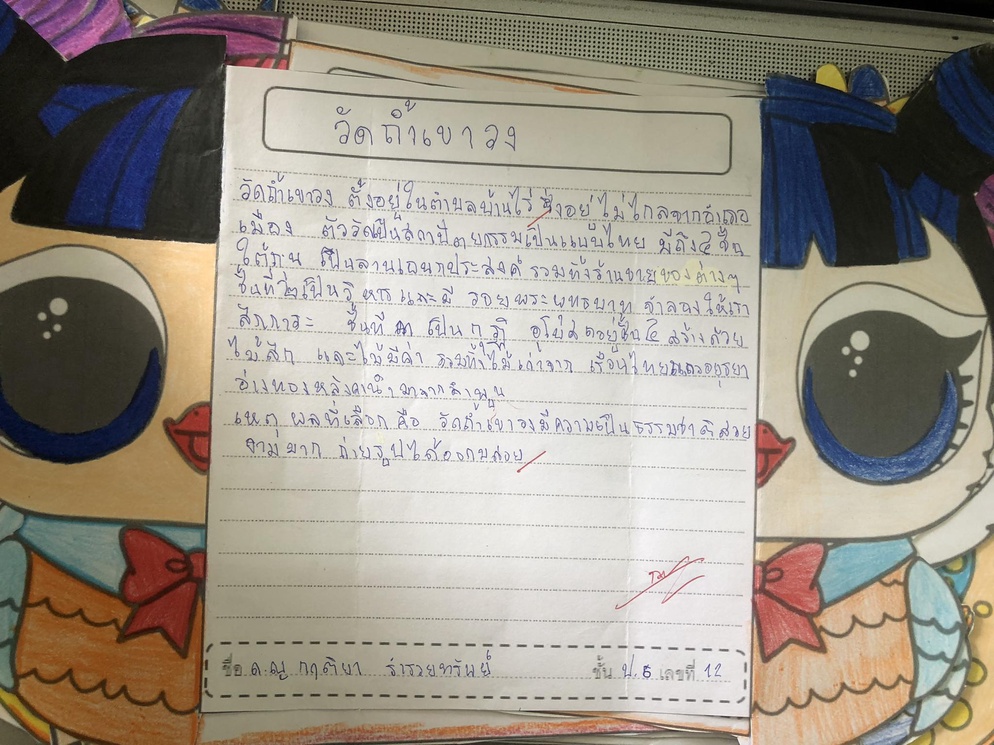 วัดถ้ำเขาวง
วัดถ้ำเขาวง ตั้งอยู่ในตำบลบ้านไร่ ซึ่งอยู่ไม่ไกลจากอำเภอ
เมือง ตัววัดเป็นสถาปัตยกรรมเป็นแบบไทย มีถึง ๔ ชั้น
ใต้ถุน เป็นลานเอนกประสงค์ รวมทั้งร้านขายของต่างๆ
ชั้นที่ ๒ เป็นวิหารและมี รอยพระพุทธบาท จำลองให้เรา
สักการะ ชั้นที่ ๓ เป็น กุฏิ อุโบสถอยู่ชั้น ๔ สร้างด้วย
ไม้สัก และไม้มีค่า รวมทั้งไม้เก่าจาก เรือนไทยแถวอยุธยา
อ่างทองหลังคานำมาจากลำพูน
เหตุผลที่เลือก คือ วัดถ้ำเขาวงมีความเป็นธรรมชาติสวย
งามมาก ถ่ายรูปได้ออกมาสวย
ชื่อ ด.ญ กฤติยา ร่ำรวยทรัพย์ ชั้น ป.5 เลขที่ 12